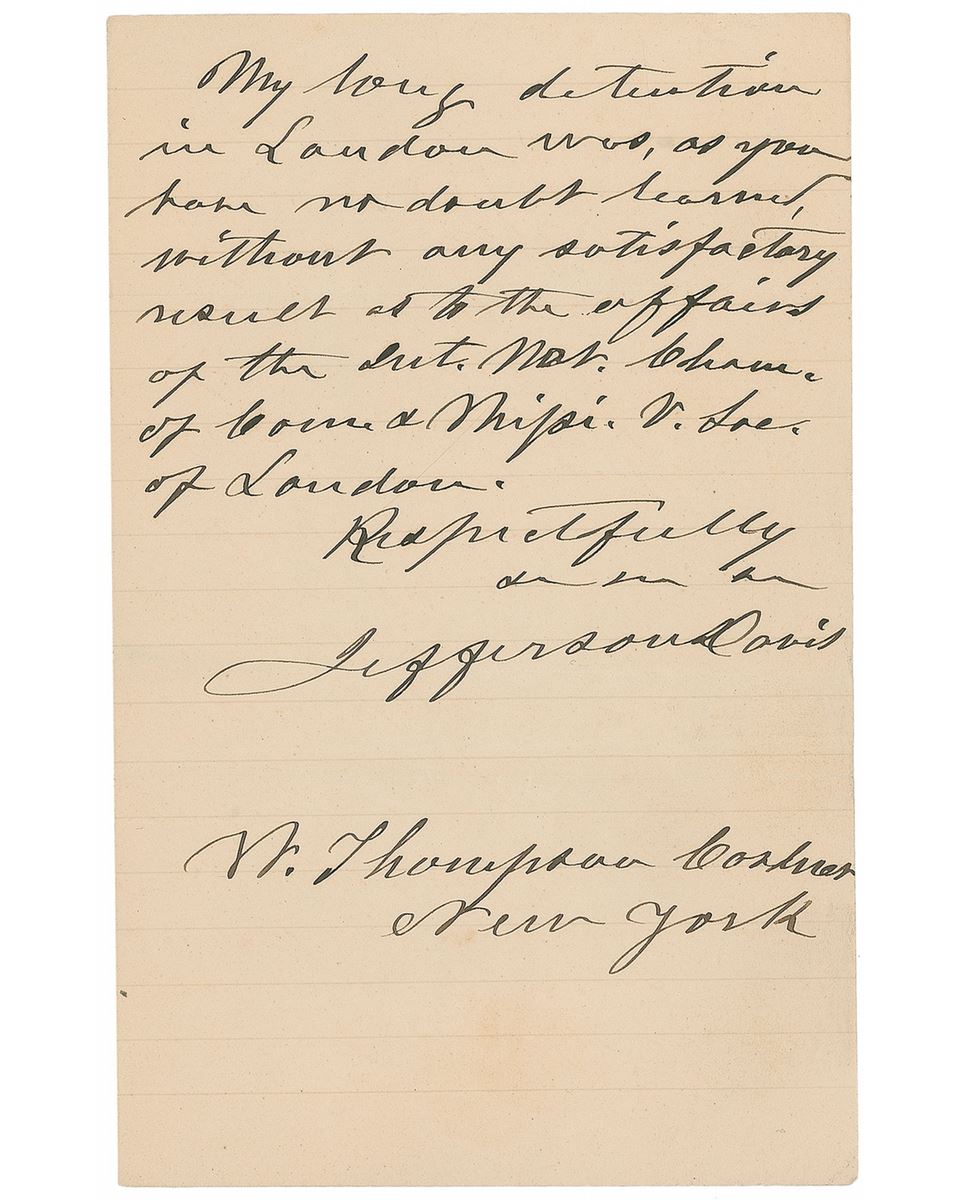 My long detention
in London was, as you
have no doubt learned,
without any satisfactory
result as to the affairs
of the Int. Nat. Cham.
of Com. & Missi. V. Soc.
of London.
Respectfully
Jefferson Davis
W. Thompson
New York